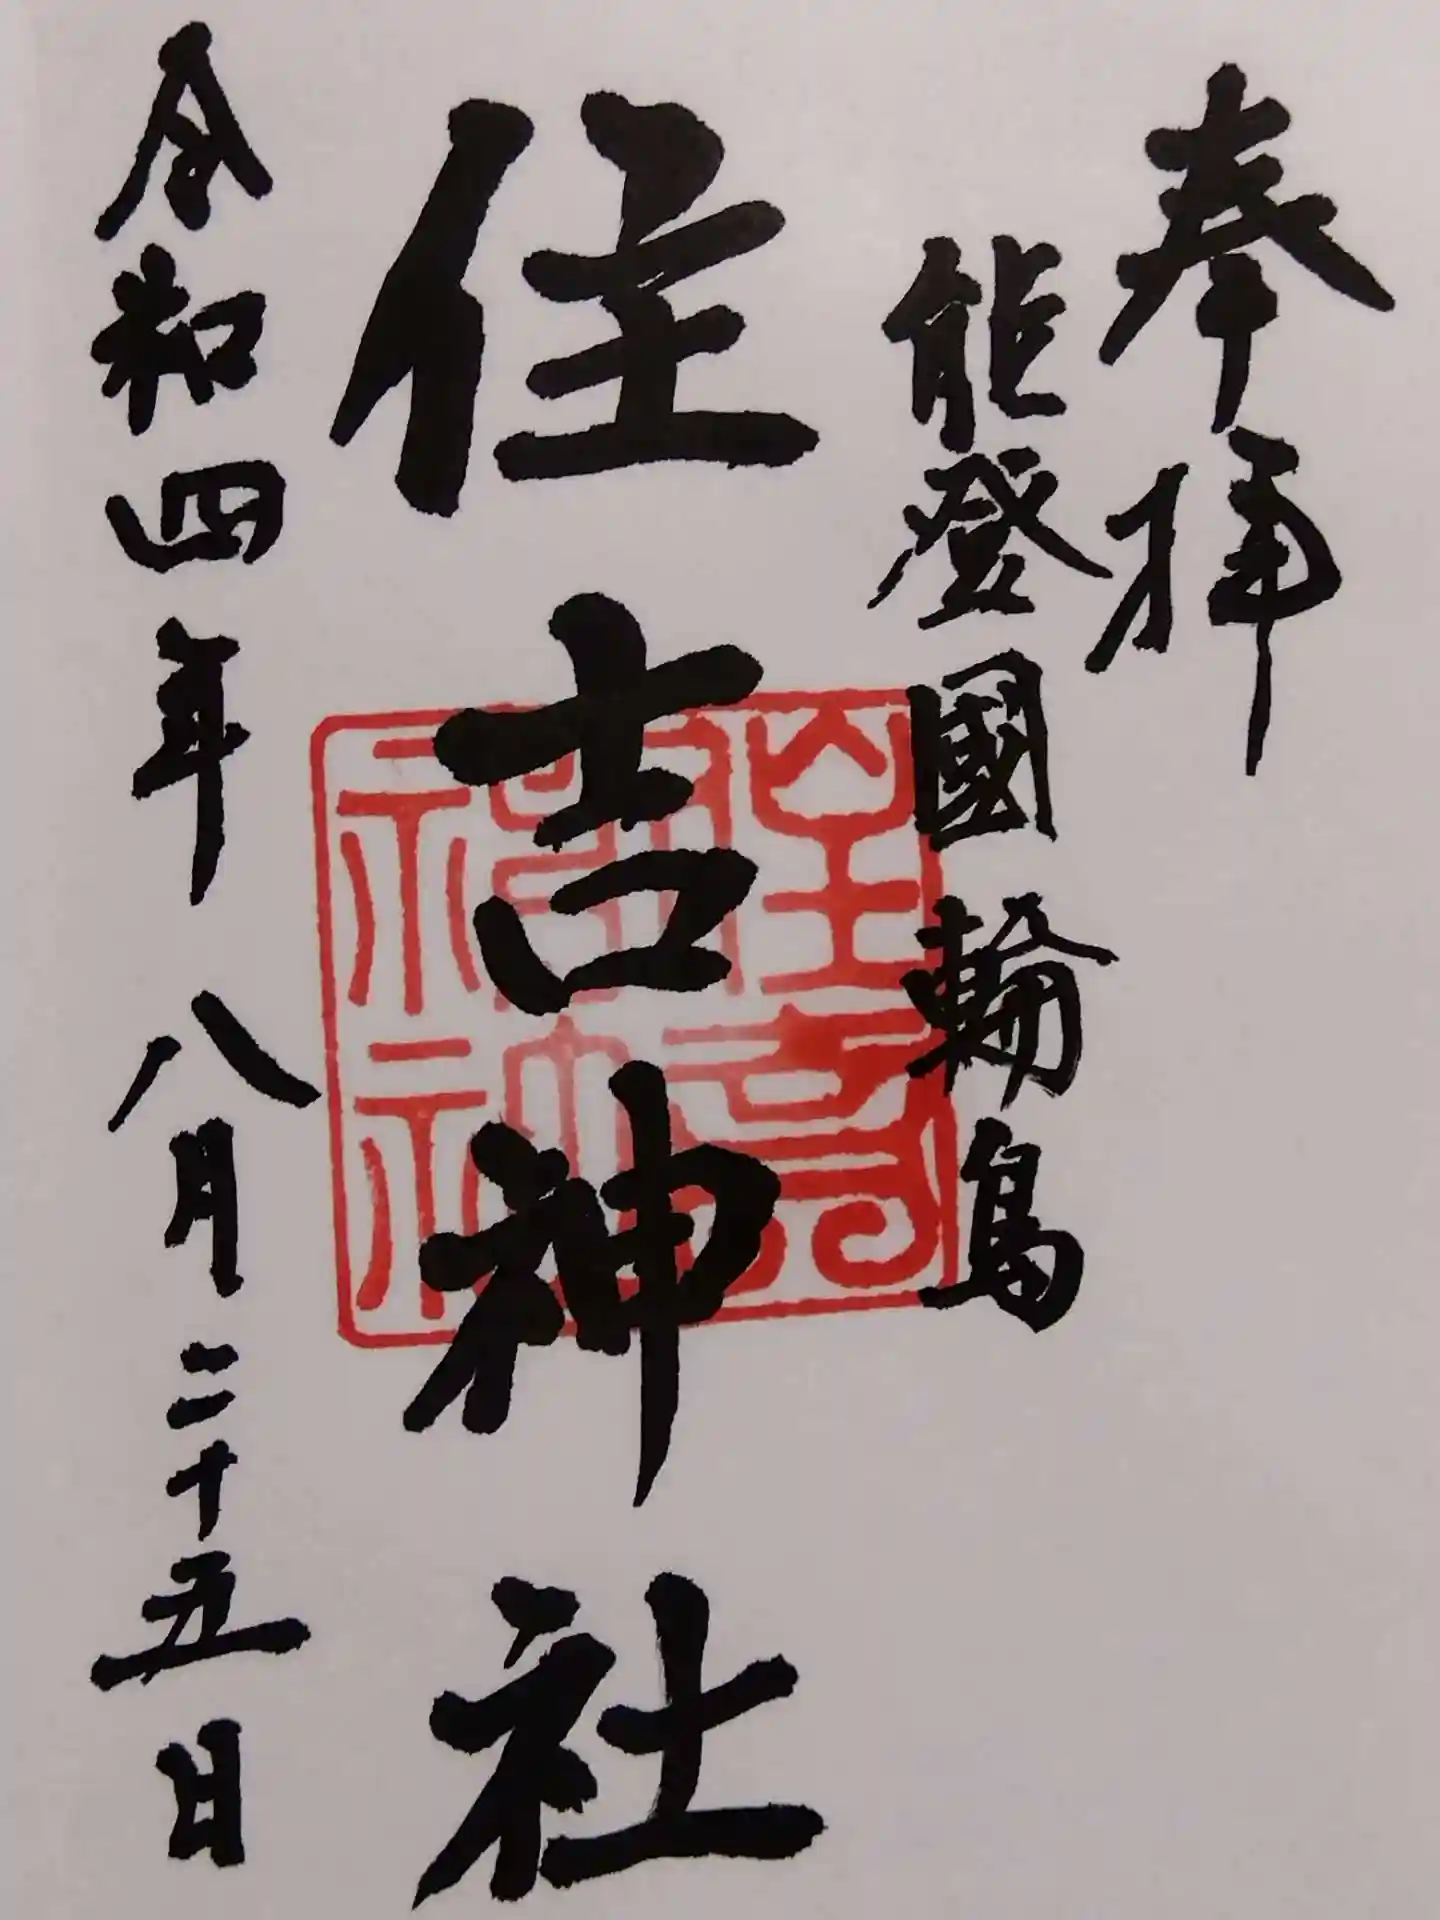 奉拝
能登國輪島
住吉神社
令和四年八月二十五日